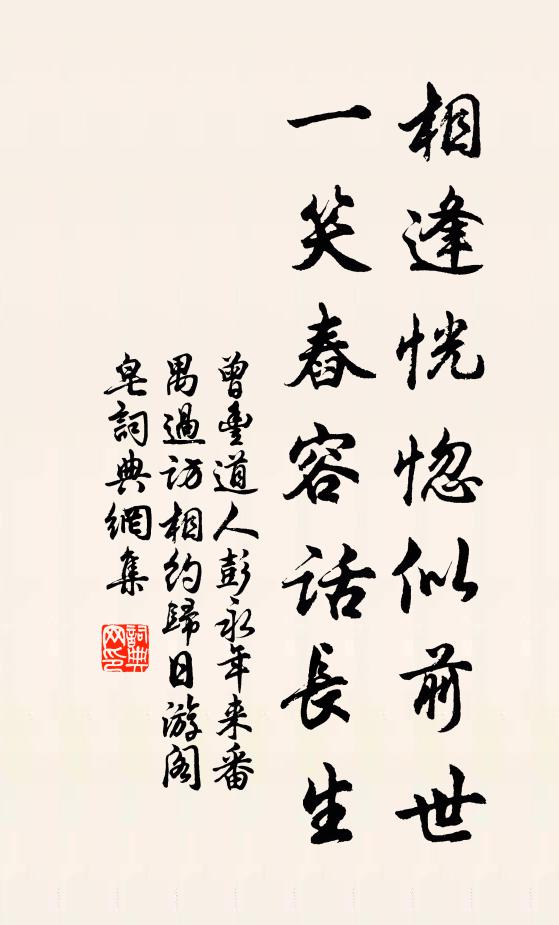 相逢恍惚似前世
一笑舂容話長生
曾豐道人彭永年来番
禺過訪相約歸日游閣
皂詞典網集
詞典
网印